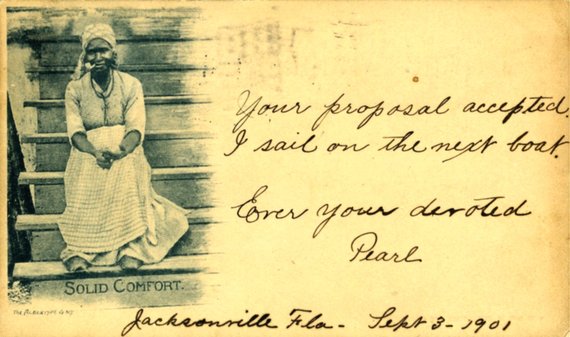 Your proposal accepted.
I sail on the next boat.
Ever your devoted
Pearl
SOLID COMFORT.
Jacksonville Fla - Sept 3 - 1901